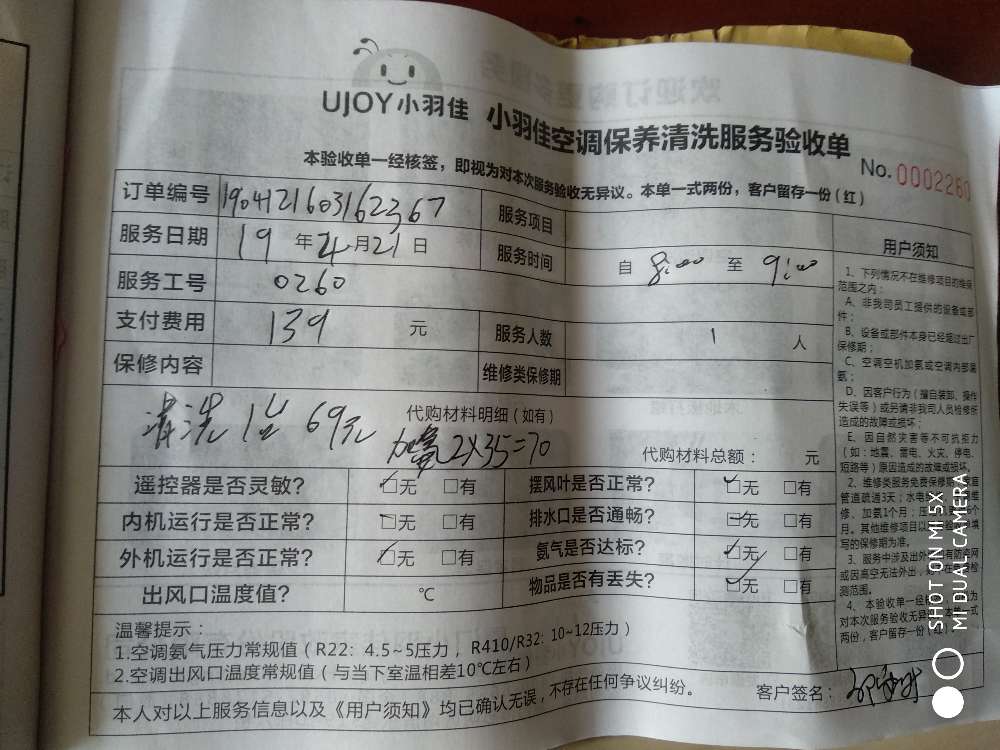 UJOY小羽佳 小羽佳空调保养清洗服务验收单
本验收单一经核签，即视为对本次服务验收无异议。本单一式两份，客户留存一份（红）
No. 0002260
订单编号 190421603162367 服务项目
服务日期 19 年 4 月 21 日 服务时间 自 8:00 至 9:00
服务工号 0260
支付费用 139 元 服务人数 1 人
保修内容 维修类保修期
清洗 1台 69元 代购材料明细（如有）
加氨 2X35=70 代购材料总额： 元
遥控器是否灵敏？ ☑无 □有 摆风叶是否正常？ ☑无 □有
内机运行是否正常？ ☑无 □有 排水口是否通畅？ ☑无 □有
外机运行是否正常？ ☑无 □有 氨气是否达标？ ☑无 □有
出风口温度值？ ℃ 物品是否有丢失？ ☑无 □有
温馨提示：
1.空调氨气压力常规值（R22：4.5~5压力，R410/R32：10~12压力）
2.空调出风口温度常规值（与当下室温相差10℃左右）
本人对以上服务信息以及《用户须知》均已确认无误，不存在任何争议纠纷。 客户签名：
用户须知
1、下列情况不在维修项目的维保
范围之内：
A、非我司员工提供的设备或部
件；
B、设备或部件本身已经超过出厂
保修期；
C、空调空机加氨或空调内部漏
氨；
D、因客户行为（擅自装卸、操作
失误等）或另请非我司人员检修所
造成的故障或损坏；
E、因自然灾害等不可抗拒力
（如：地震、雷电、火灾、停电、
短路等）原因造成的故障或损坏。
2、维修类服务免费保修期
管道疏通3天；水电
修、加氨1个月；
月。其他维修项目以
写的保修期为准。
3、服务中涉及出外
或因高空无法外出，
测范围。
4、本验收单一经
对本次服务验收无异
两份，客户留存一份（红）
SHOT ON MI 5X
MI DUAL CAMERA